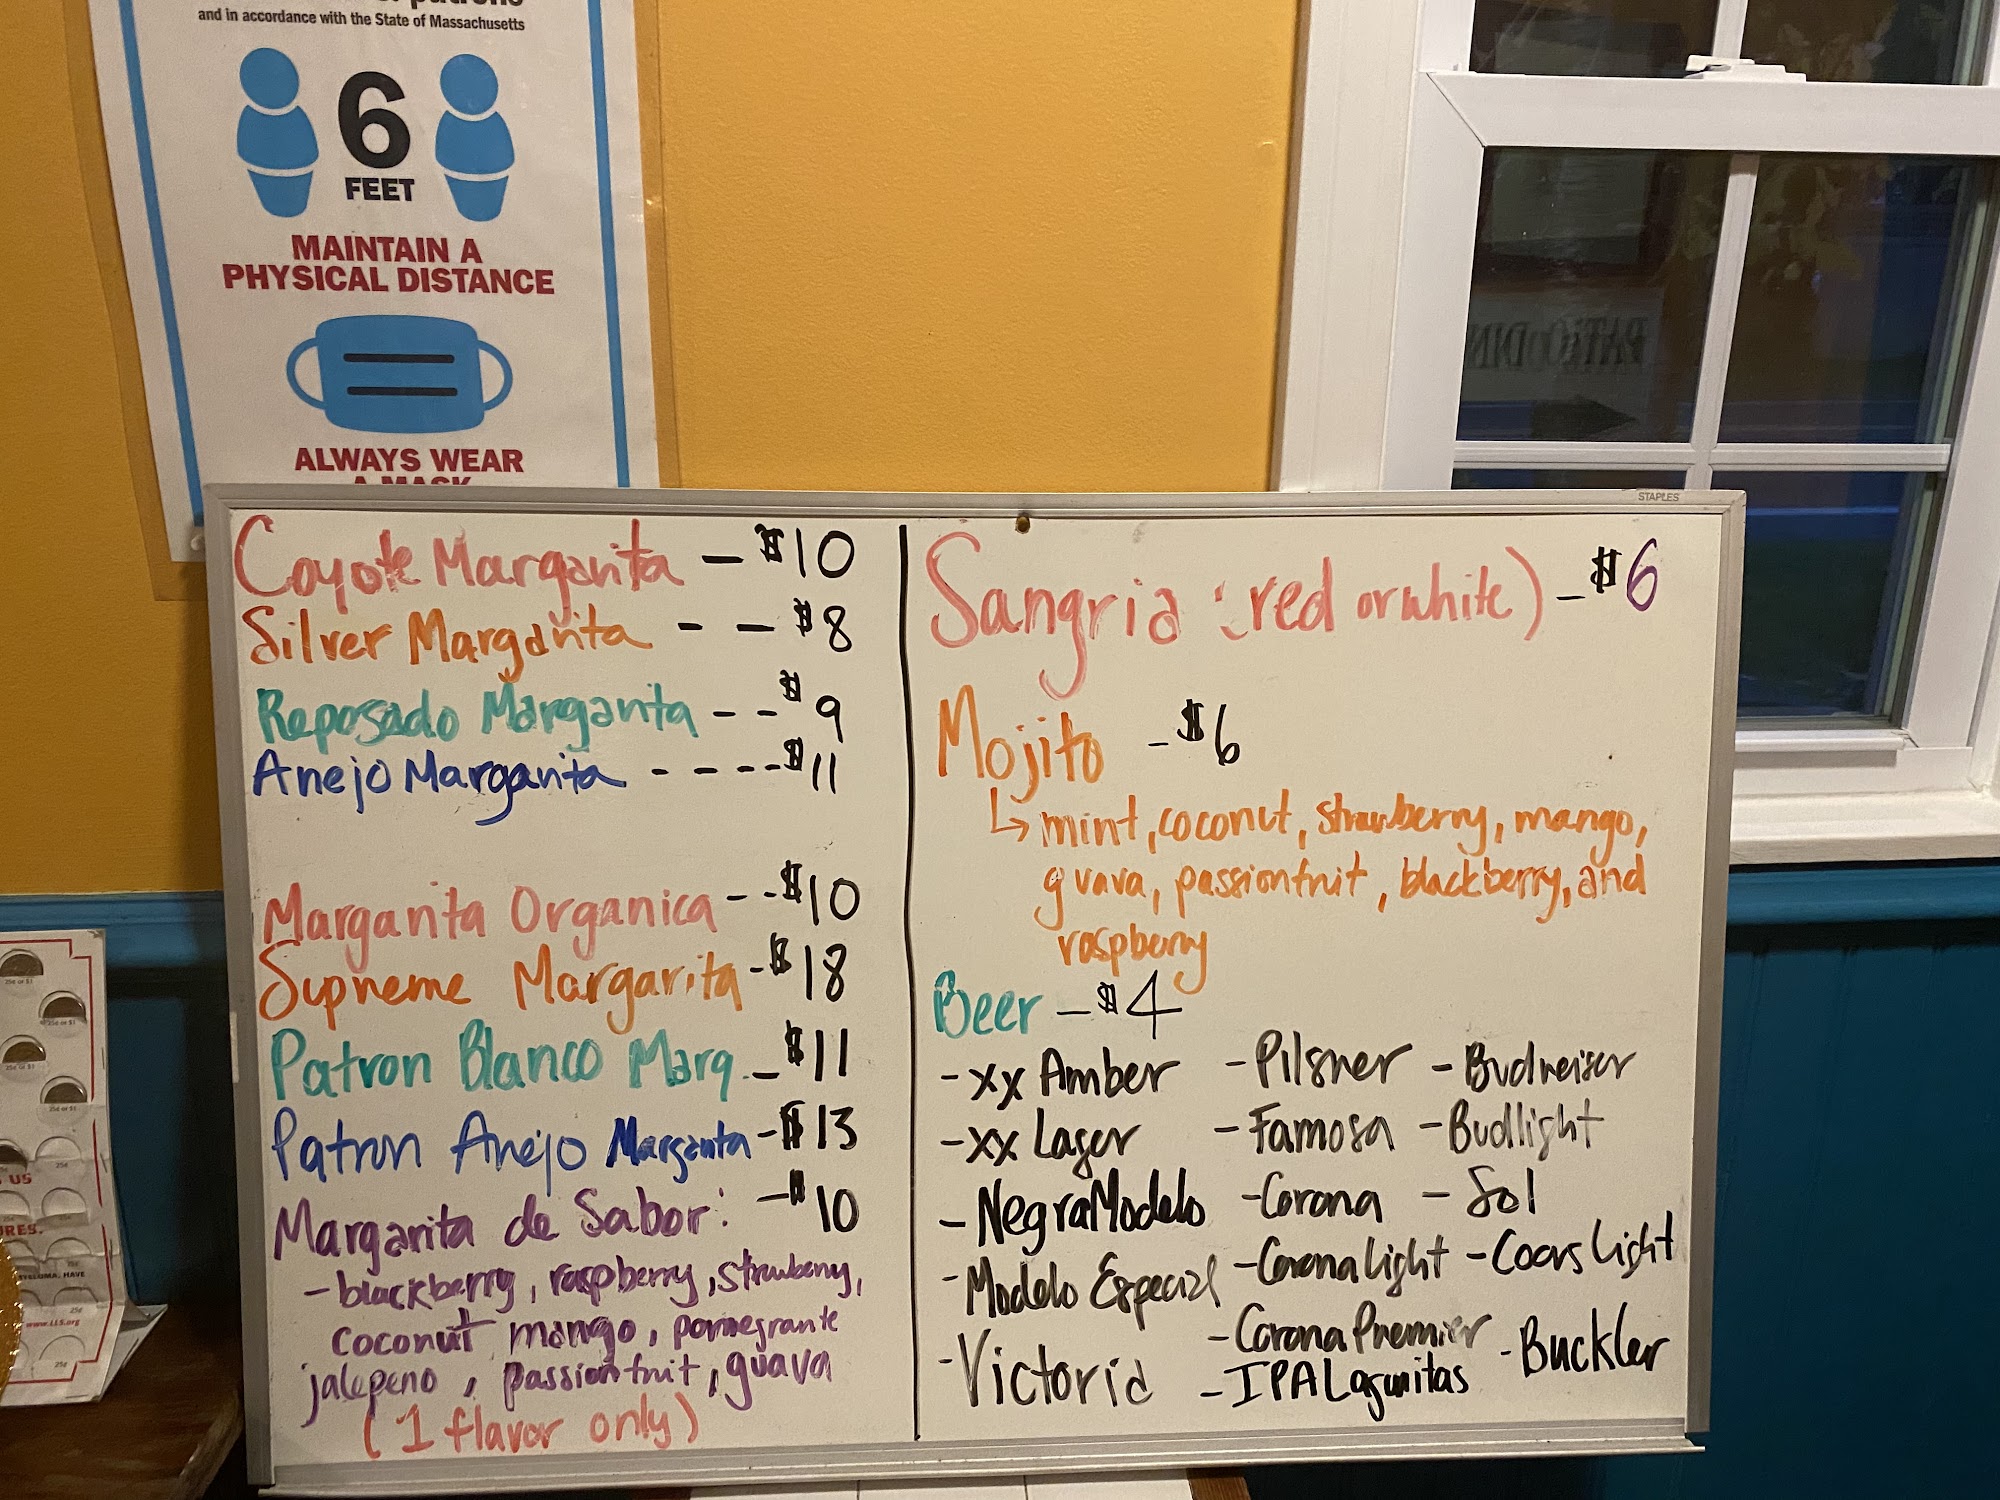 and in accordance with the State of Massachusetts
6
FEET
MAINTAIN A
PHYSICAL DISTANCE
ALWAYS WEAR
A MASK
STAPLES
Coyote Margarita - $10
Silver Margarita - - $8
Reposado Margarita - - $9
Anejo Margarita - - - - $11
Margarita Organica - - $10
Supreme Margarita - $18
Patron Blanco Marg. - $11
Patron Anejo Margarita - $13
Margarita de Sabor: - $10
- blackberry, raspberry, strawberry,
coconut mango, pomegrante
jalepeno, passionfruit, guava
(1 flavor only)
Sangria (red or white) - $6
Mojito - $6
↳ mint, coconut, strawberry, mango,
guava, passionfruit, blackberry, and
raspberry
Beer - $4
- xx Amber
- xx Lager
- Negra Modelo
- Modelo Especial
- Victoria
- Pilsner
- Famosa
- Corona
- Corona Light
- Corona Premier
- IPA Lagunitas
- Budweiser
- Budlight
- Sol
- Coors Light
- Buckler
PATIO DIN
25¢ or $1
25¢ or $1
25¢ or $1
25¢ or $1
25¢
US
RES.
HAVE
25¢
25¢
www.LLS.org
25¢